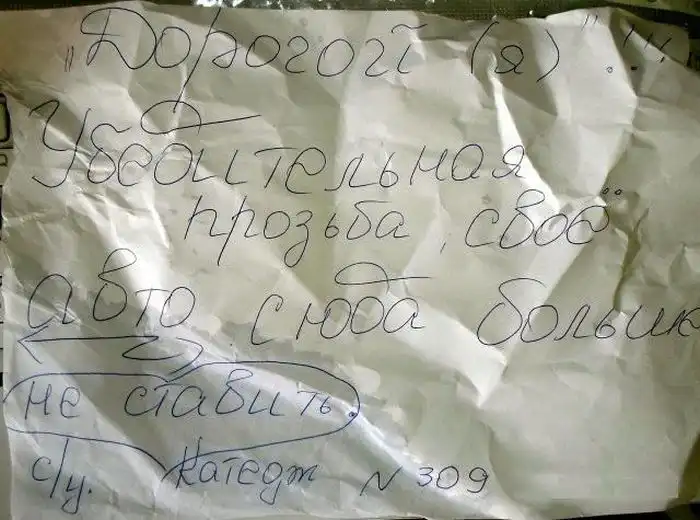 "Дорогой (я)"!!!
Убедительная
прозьба, своё
авто сюда больше
не ставить.
с/у. Катедж N 309